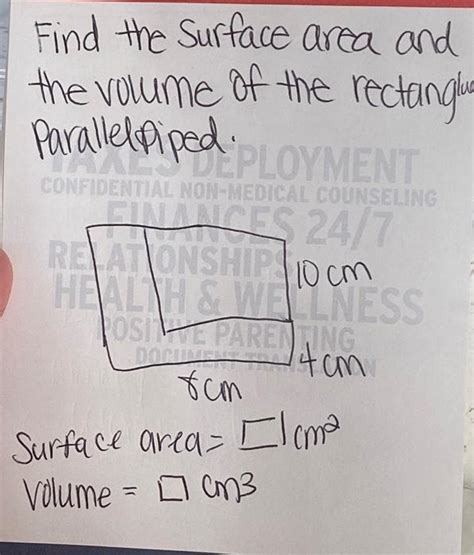 Find the Surface area and
the volume of the rectanglua
Parallelpiped.
TAXES DEPLOYMENT
CONFIDENTIAL NON-MEDICAL COUNSELING
FINANCES 24/7
RELATIONSHIPS
10 cm
HEALTH & WELLNESS
POSITIVE PARENTING
4 cm
DOCUMENT
cm
Surface area = □ cm²
Volume = □ cm3